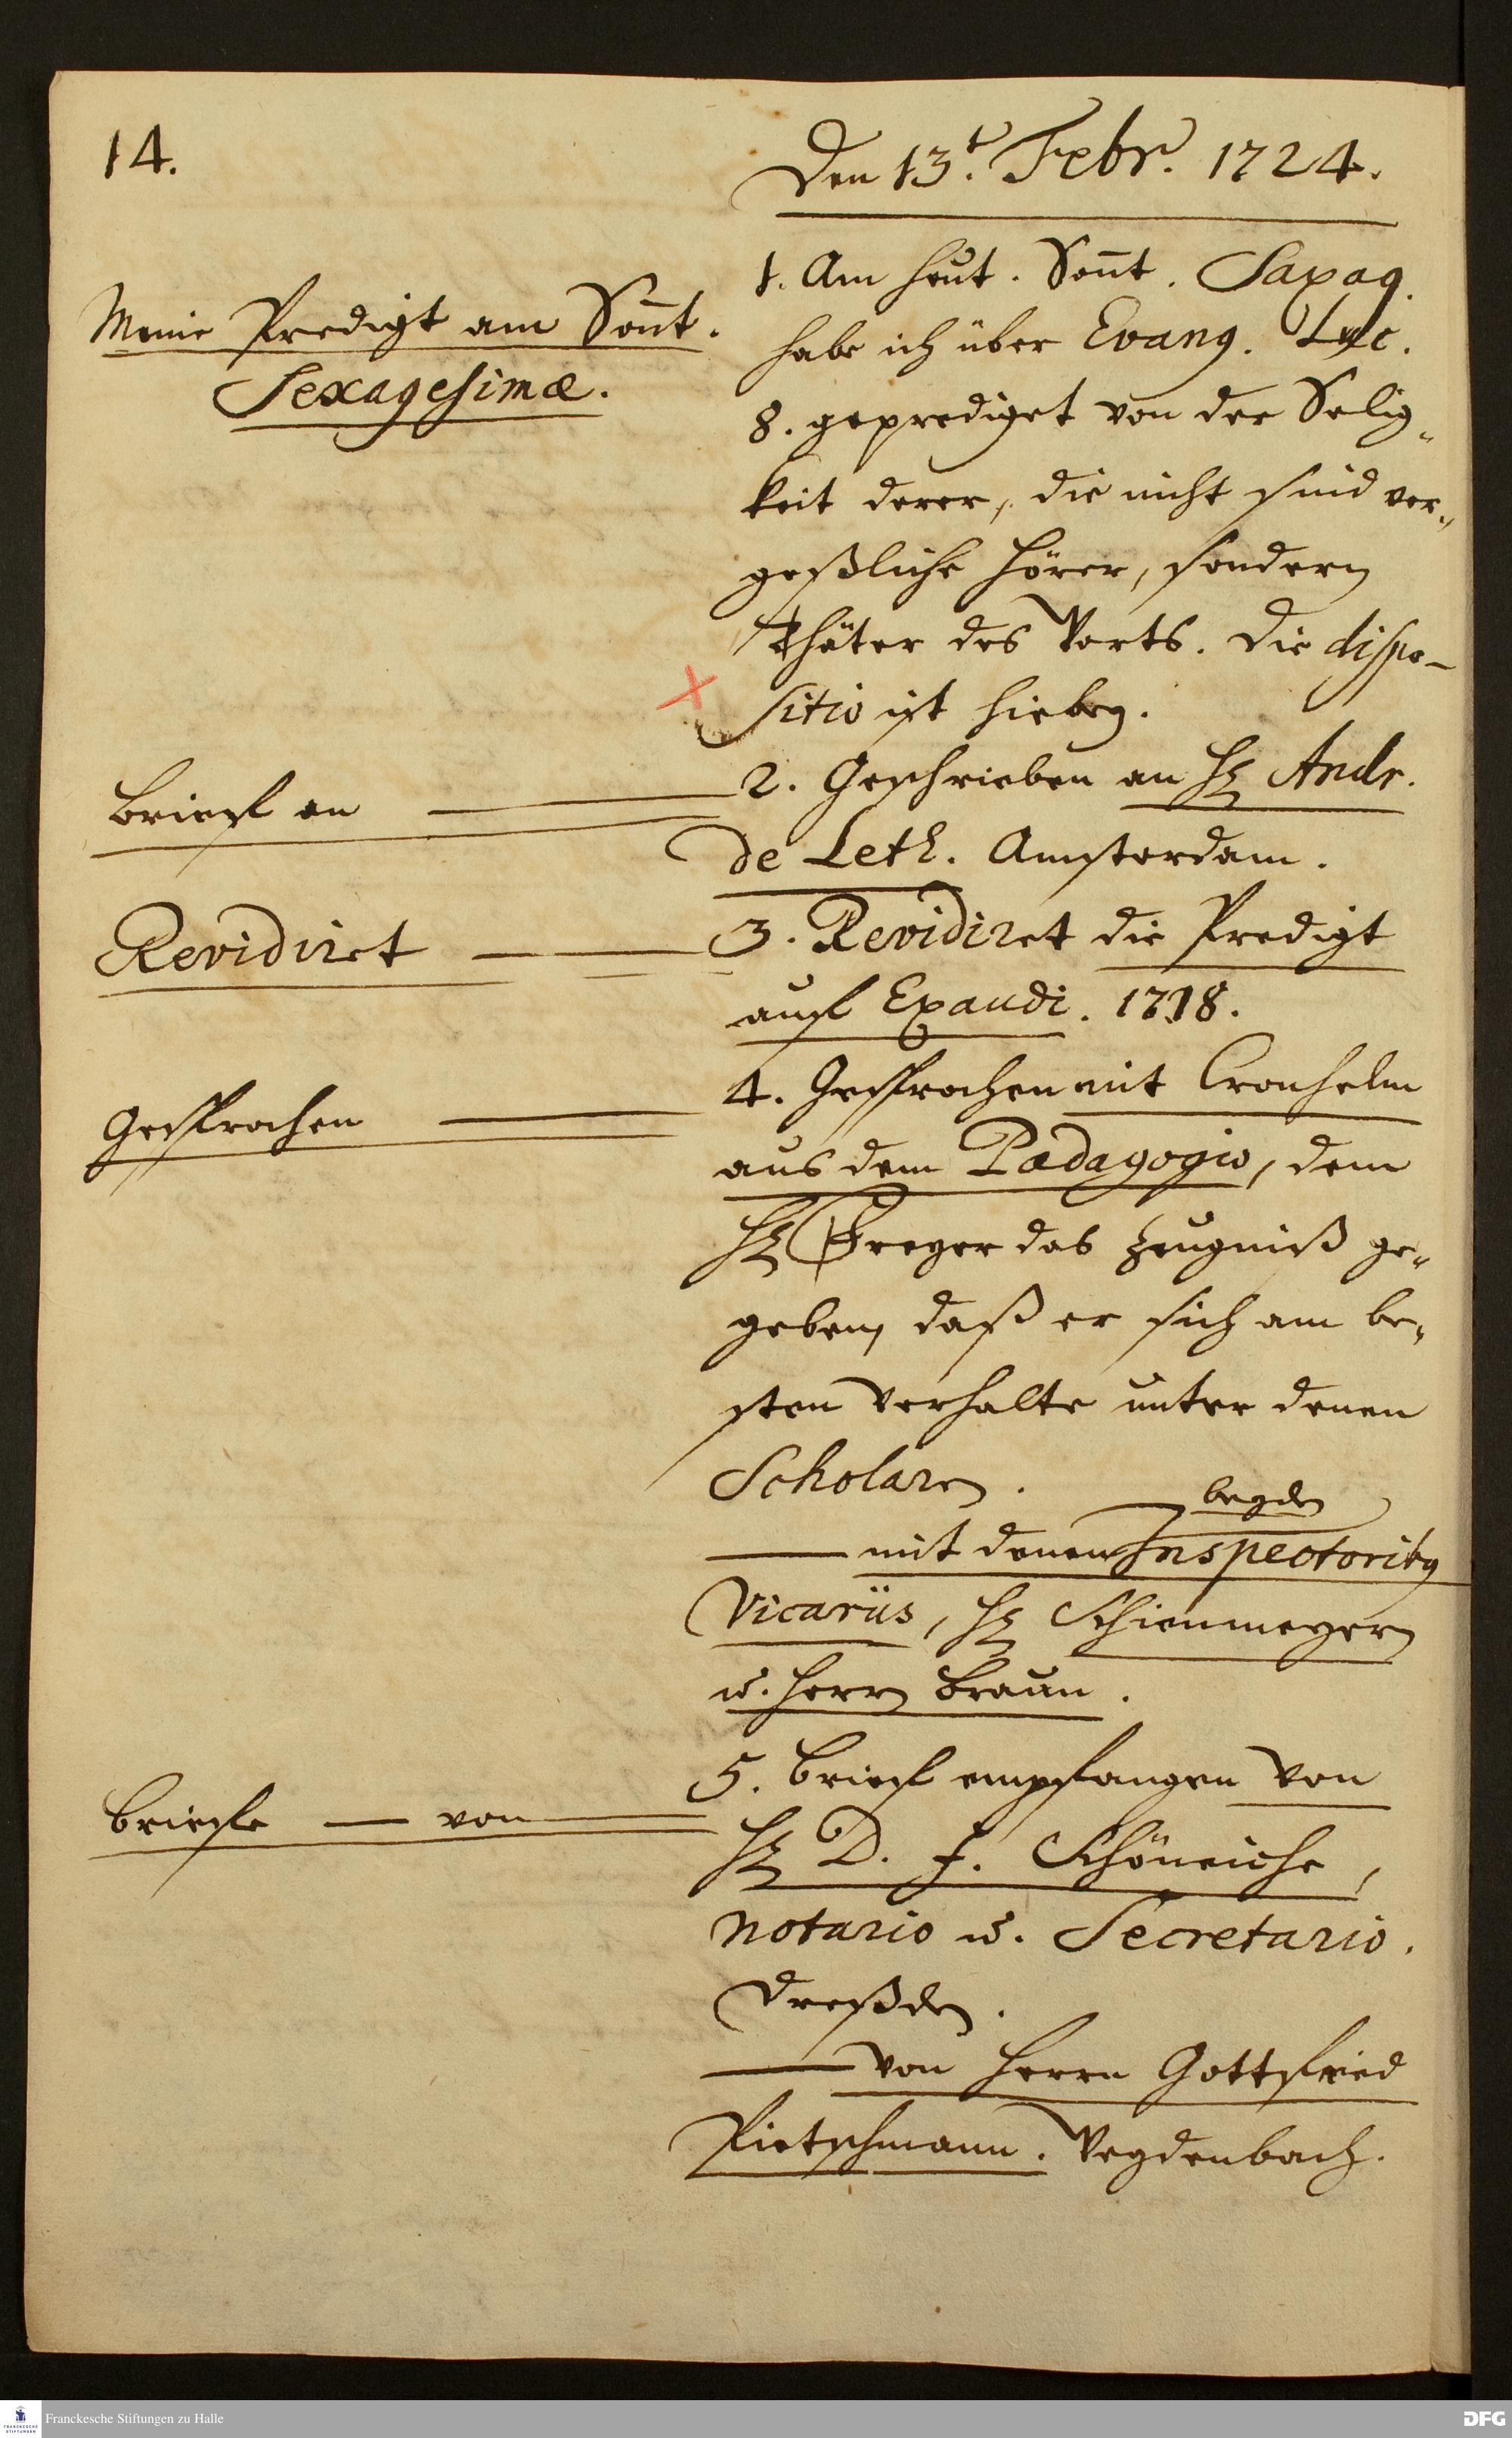 14.
Den 13.t Febr. 1724.
Meine Predigt am Soñt.
Sexagesimæ.
1. Am heut. Soñt. Saxag.
habe ich über Evang. Luc.
8. geprediget von der Selig„
keit derer, die nicht sind ver„
geßliche Hörer, sondern
Thäter des Worts. Die dispo-
sitio ist hiebey.
Brieff an
2. Geschrieben an H. Andr.
de Leth. Amsterdam.
Revidiret
3. Revidiret die Predigt
auff Exaudi. 1718.
Gesprochen
4. Gesprochen mit Cronhelm
aus dem Pædagogio, dem
H. Freyer das Zeugniß ge„
geben, daß er sich am be„
sten verhalte unter denen
Scholaren.
beyden
mit denen Inspectoribus
Vicariis, H. Schienmeyern
u. Herrn Braun.
Brieffe — von
5. Brieff empfangen von
H. D. F. Schöneiche,
Notario u. Secretario.
Dreßden.
— von Herrn Gottfried
Pietschmann. Weydenbach.
Franckesche Stiftungen zu Halle
FRANCKESCHE
STIFTUNGEN
DFG